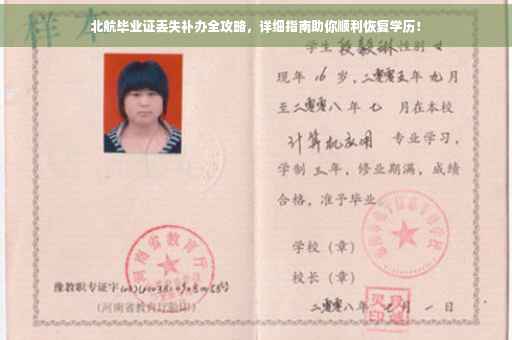 北航毕业证丢失补办全攻略，详细指南助你顺利恢复学历！
样本
学生 段毅琳 性别 女
现年 16 岁，二零零五年 九月
至二零零八年 七 月在本校
计算机应用 专业学习，
学制 三 年，修业期满，成绩
合格，准予毕业
河南省教育厅
学校（章）
校长（章）
豫教职专证字
（河南省教育厅验印）
二零零八年 七 月 一 日